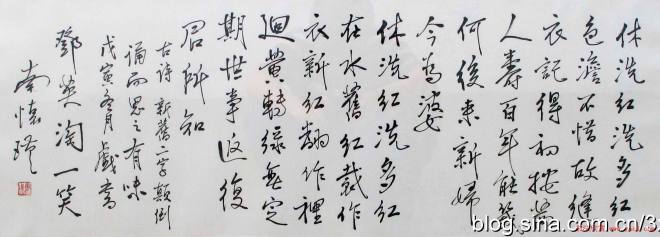 休洗紅洗多紅
色澹不惜故縫
衣記得初按茜
人壽百年能幾
何後来新婦
今為婆
休洗紅洗多紅
在水舊紅裁作
衣新紅翻作裡
迴黄轉緑無定
期世事返復
君所知
古诗新舊二字顛倒
诵而思之有味
戊寅冬月戲書
鄧英淘一笑
南懷瑾
blog.sina.com.cn/3